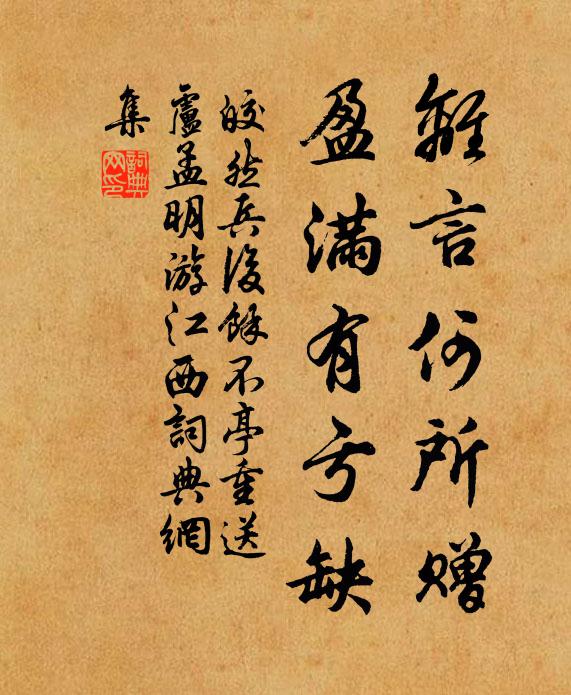 離言何所贈
盈滿有亏缺
皎然兵後餘不亭重送
盧孟明游江西詞典網
集
詞典網印